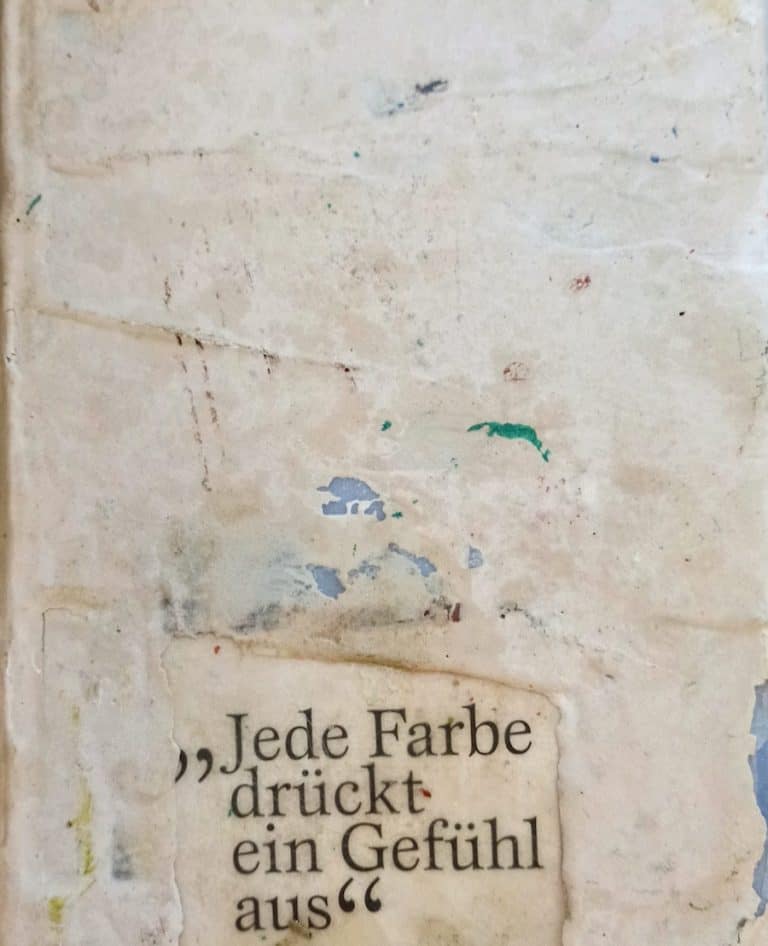 „Jede Farbe
drückt
ein Gefühl
aus“